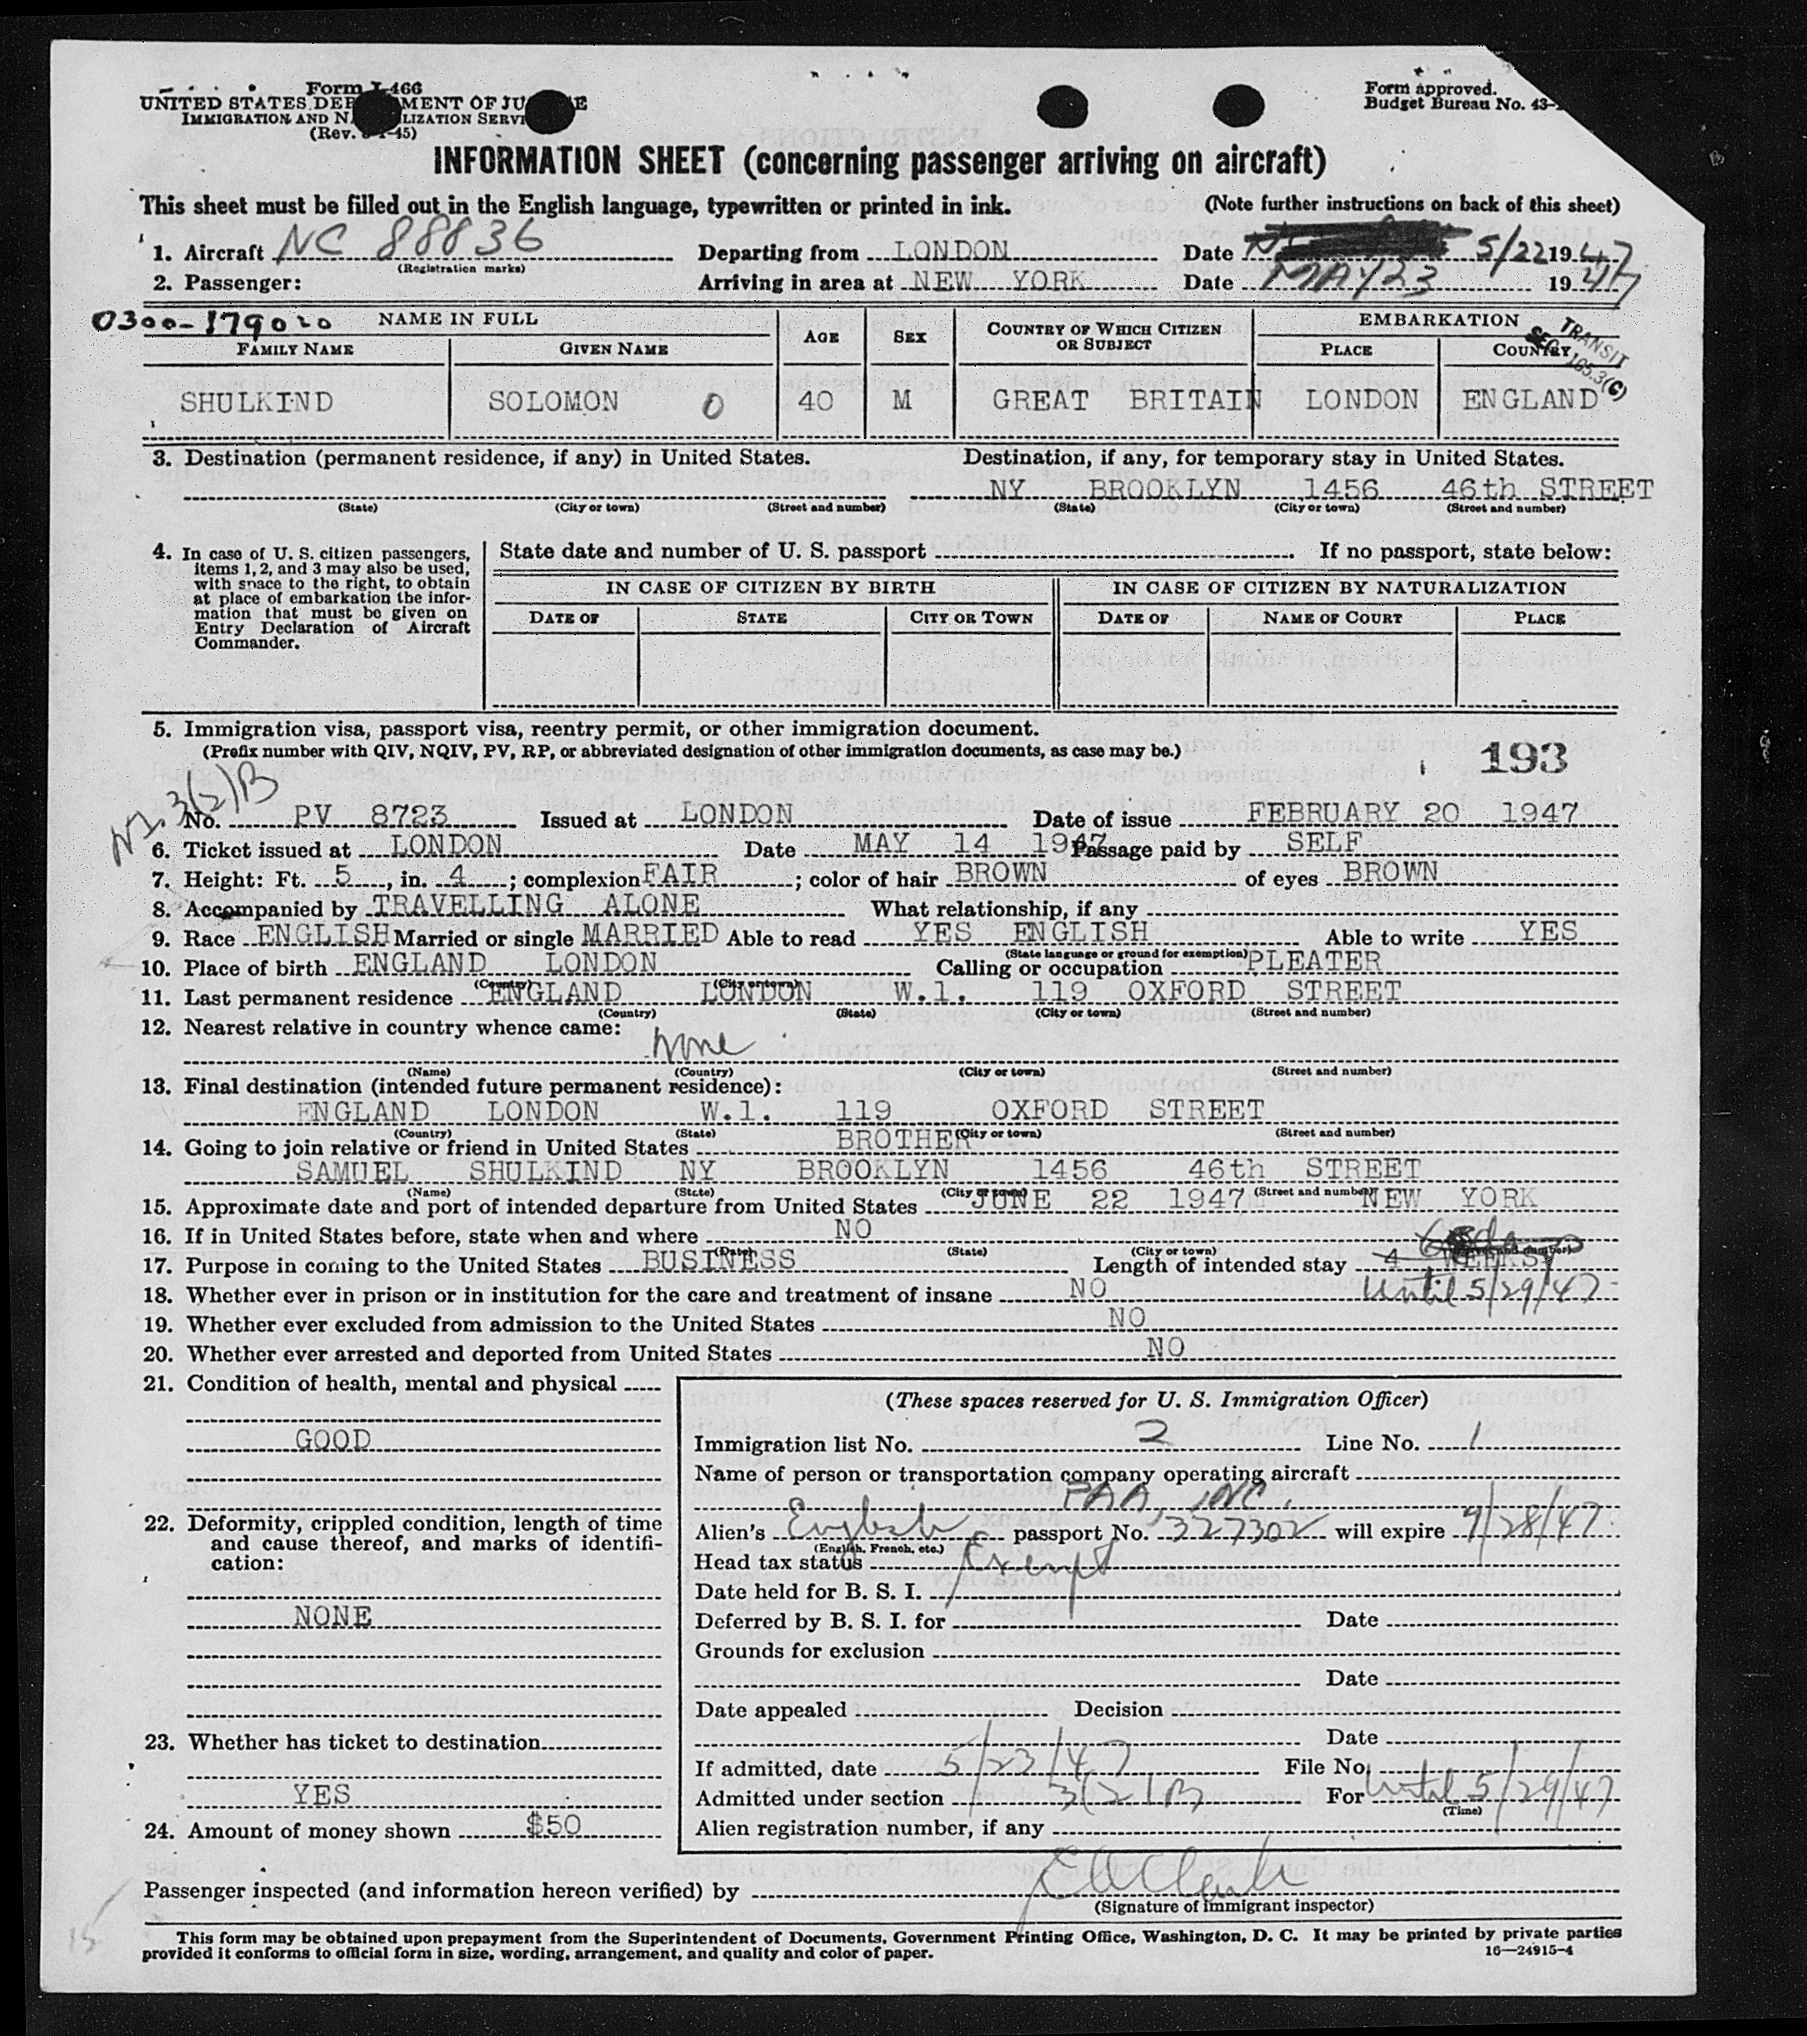 Form I-466
UNITED STATES DEPARTMENT OF JUSTICE
IMMIGRATION AND NATURALIZATION SERVICE
(Rev. -45)
Form approved.
Budget Bureau No. 43-
INFORMATION SHEET (concerning passenger arriving on aircraft)
This sheet must be filled out in the English language, typewritten or printed in ink. (Note further instructions on back of this sheet)
1. Aircraft NC 88836 Departing from LONDON Date 5/22 1947
(Registration marks)
2. Passenger: Arriving in area at NEW YORK Date MAY 23 1947
0300-179020 NAME IN FULL AGE SEX COUNTRY OF WHICH CITIZEN OR SUBJECT EMBARKATION
TRANSIT
SEC. 165.3(C)
FAMILY NAME GIVEN NAME PLACE COUNTRY
SHULKIND SOLOMON 0 40 M GREAT BRITAIN LONDON ENGLAND
3. Destination (permanent residence, if any) in United States. Destination, if any, for temporary stay in United States.
NY BROOKLYN 1456 46th STREET
(State) (City or town) (Street and number) (State) (City or town) (Street and number)
4. In case of U. S. citizen passengers, items 1, 2, and 3 may also be used, with space to the right, to obtain at place of embarkation the information that must be given on Entry Declaration of Aircraft Commander.
State date and number of U. S. passport . If no passport, state below:
IN CASE OF CITIZEN BY BIRTH IN CASE OF CITIZEN BY NATURALIZATION
DATE OF STATE CITY OR TOWN DATE OF NAME OF COURT PLACE
5. Immigration visa, passport visa, reentry permit, or other immigration document.
(Prefix number with QIV, NQIV, PV, RP, or abbreviated designation of other immigration documents, as case may be.)
193
3(2)B
No. PV 8723 Issued at LONDON Date of issue FEBRUARY 20 1947
6. Ticket issued at LONDON Date MAY 14 1947 Passage paid by SELF
7. Height: Ft. 5, in. 4; complexion FAIR; color of hair BROWN of eyes BROWN
8. Accompanied by TRAVELLING ALONE What relationship, if any
9. Race ENGLISH Married or single MARRIED Able to read YES ENGLISH Able to write YES
(State language or ground for exemption)
10. Place of birth ENGLAND LONDON Calling or occupation PLEATER
(Country) (City or town)
11. Last permanent residence ENGLAND LONDON W.1. 119 OXFORD STREET
(Country) (State) (City or town) (Street and number)
12. Nearest relative in country whence came:
None
(Name) (Country) (City or town) (Street and number)
13. Final destination (intended future permanent residence):
ENGLAND LONDON W.1. 119 OXFORD STREET
(Country) (State) (City or town) (Street and number)
14. Going to join relative or friend in United States BROTHER
SAMUEL SHULKIND NY BROOKLYN 1456 46th STREET
(Name) (State) (City or town) (Street and number)
15. Approximate date and port of intended departure from United States JUNE 22 1947 NEW YORK
16. If in United States before, state when and where NO
(Date) (State) (City or town) (Street and number)
17. Purpose in coming to the United States BUSINESS Length of intended stay 4 WEEKS
Until 5/29/47
18. Whether ever in prison or in institution for the care and treatment of insane NO
19. Whether ever excluded from admission to the United States NO
20. Whether ever arrested and deported from United States NO
21. Condition of health, mental and physical
GOOD
22. Deformity, crippled condition, length of time and cause thereof, and marks of identification:
NONE
23. Whether has ticket to destination
YES
24. Amount of money shown $50
(These spaces reserved for U. S. Immigration Officer)
Immigration list No. 2 Line No. 1
Name of person or transportation company operating aircraft
PAA, INC.
Alien's English passport No. 327302 will expire 9/28/47
(English, French, etc.)
Head tax status Exempt
Date held for B. S. I.
Deferred by B. S. I. for Date
Grounds for exclusion
Date
Date appealed Decision
Date
If admitted, date 5/23/47 File No.
Admitted under section 3(2)B For Until 5/29/47
(Time)
Alien registration number, if any
Passenger inspected (and information hereon verified) by
(Signature of immigrant inspector)
15
This form may be obtained upon prepayment from the Superintendent of Documents, Government Printing Office, Washington, D. C. It may be printed by private parties
provided it conforms to official form in size, wording, arrangement, and quality and color of paper. 16—24915-4